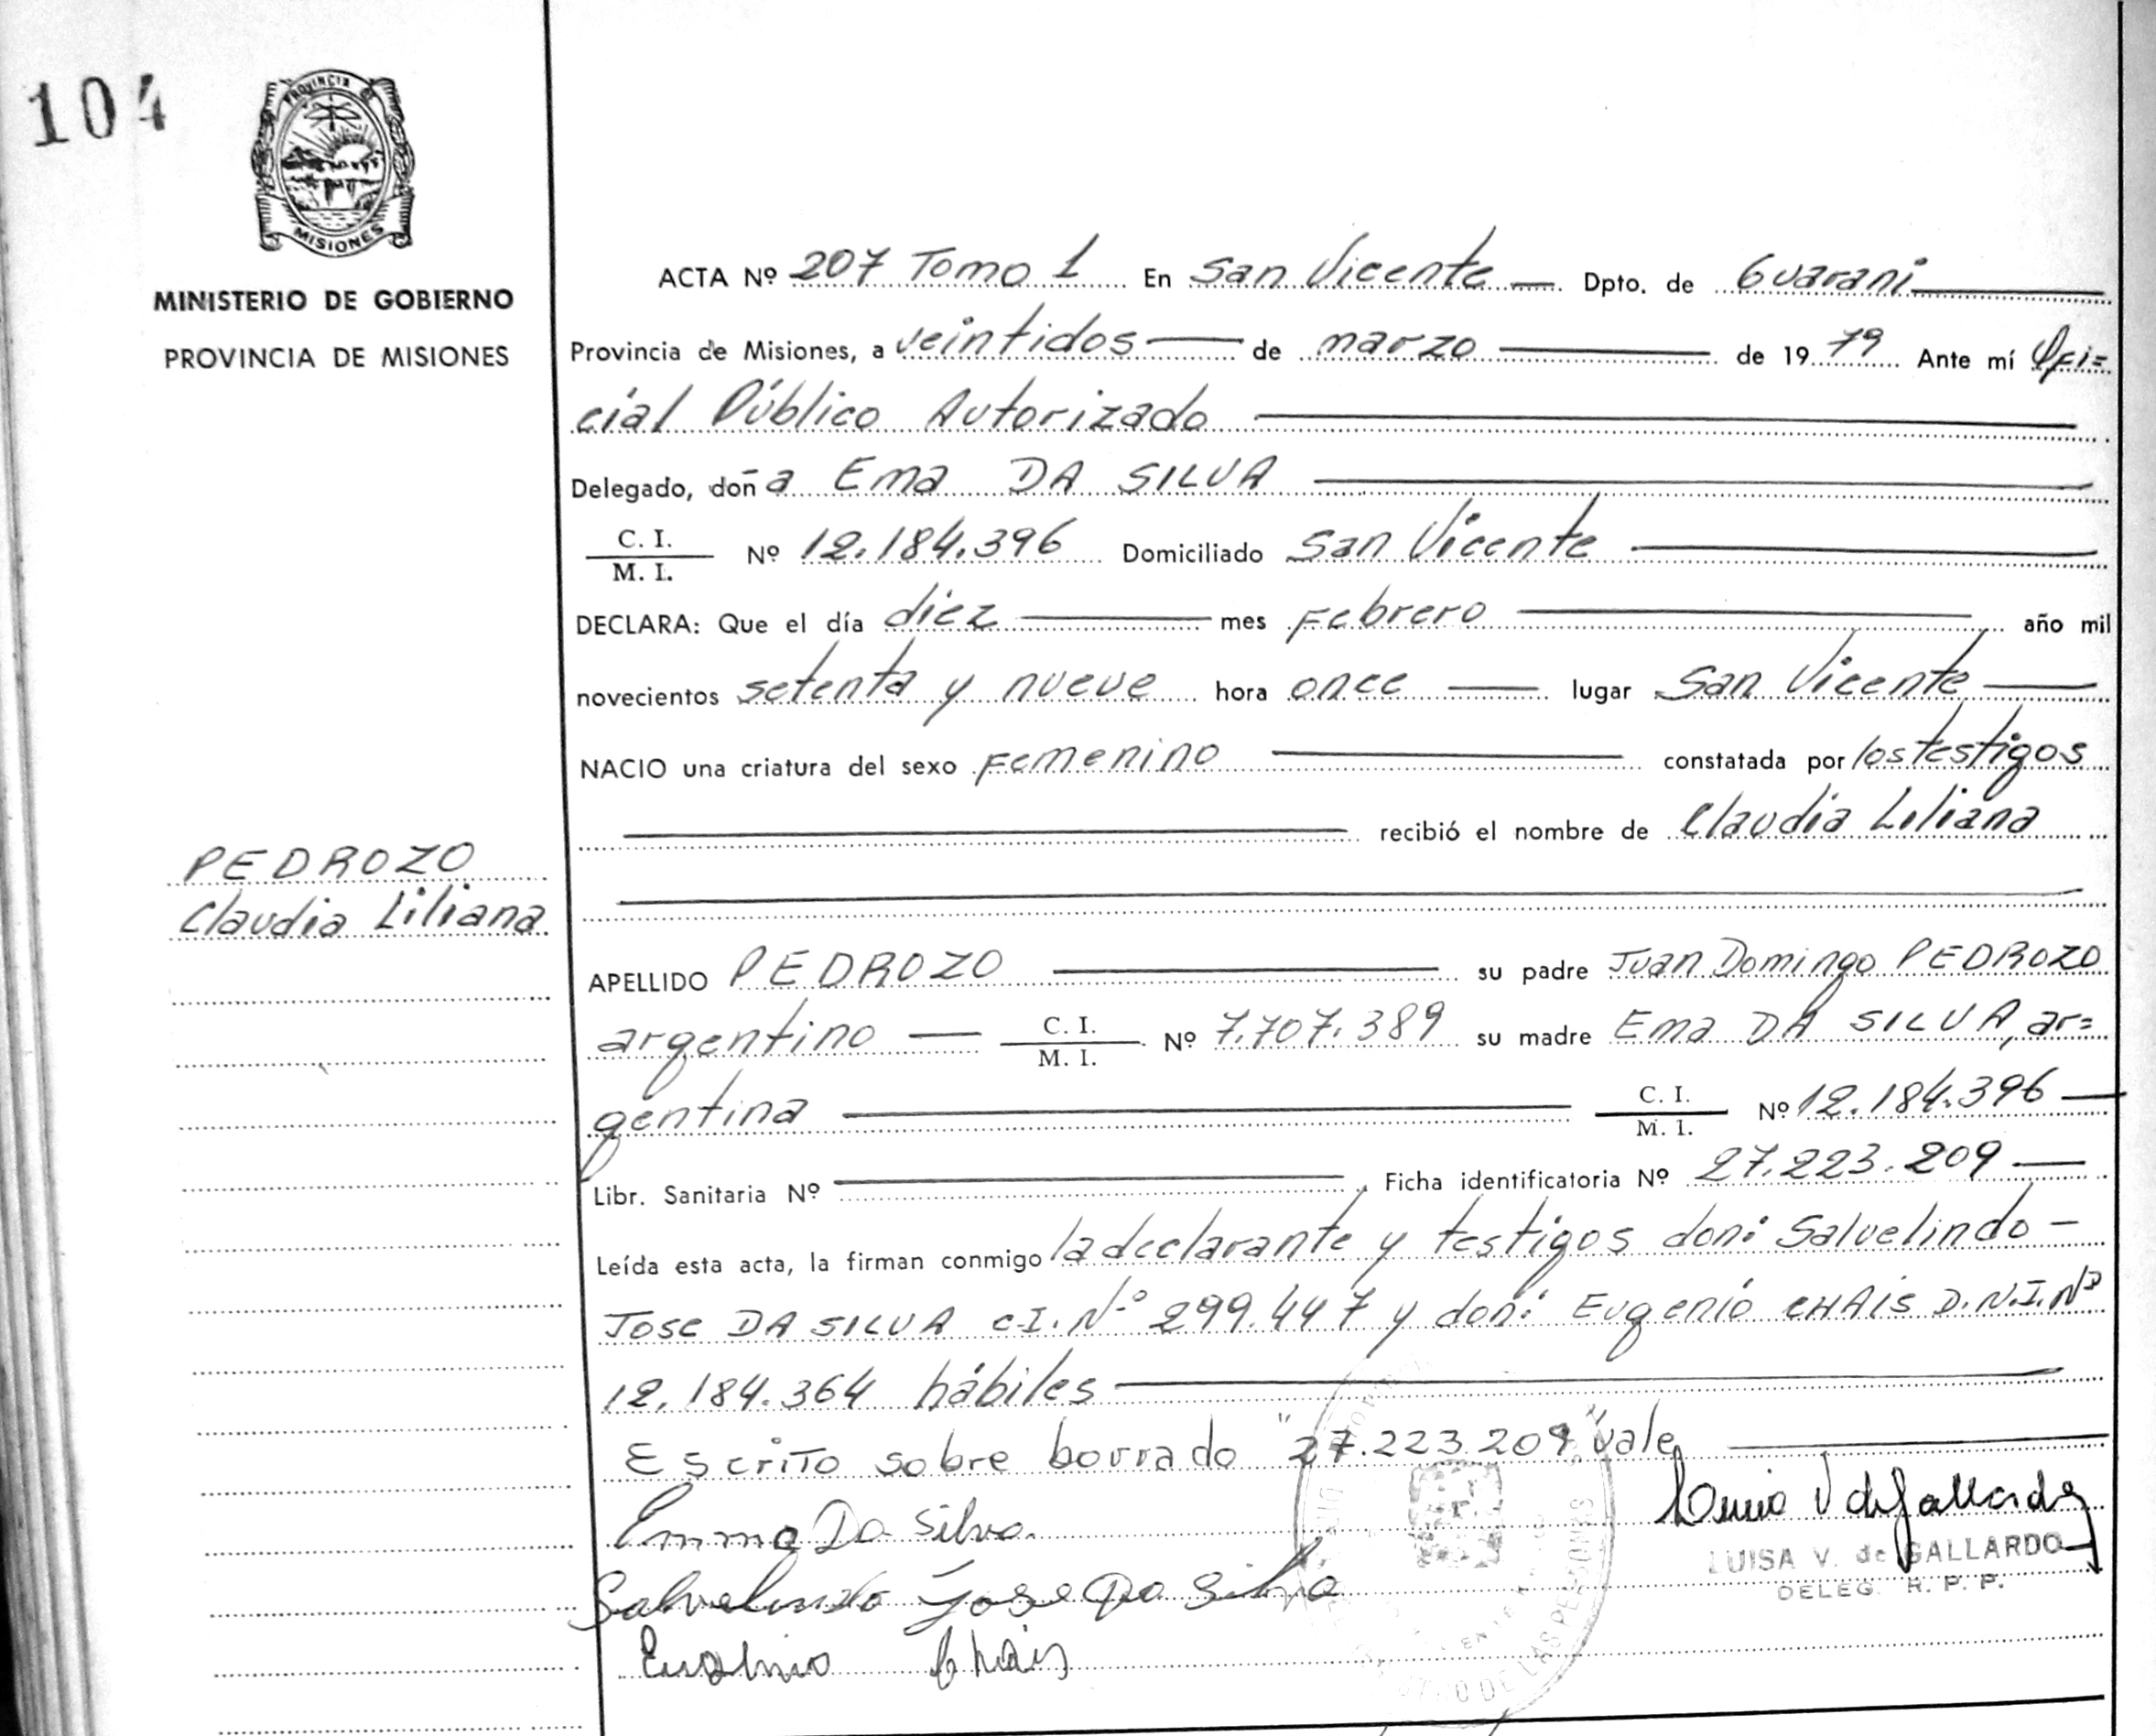 104
PROVINCIA DE
MISIONES
MINISTERIO DE GOBIERNO
PROVINCIA DE MISIONES
PEDROZO
Claudia Liliana
ACTA Nº 207 Tomo 1 En San Vicente — Dpto. de Guarani
Provincia de Misiones, a veintidos — de marzo — de 19 79 Ante mí Ofi=
cial Público Autorizado
Delegado, doña Ema DA SILVA
C. I.
M. I. Nº 12.184.396 Domiciliado San Vicente
DECLARA: Que el día diez — mes Febrero — año mil
novecientos setenta y nueve hora once — lugar San Vicente —
NACIO una criatura del sexo Femenino — constatada por los testigos
— recibió el nombre de Claudia Liliana
APELLIDO PEDROZO — su padre Juan Domingo PEDROZO
argentino — C. I. M. I. Nº 7.707.389 su madre Ema DA SILVA, ar=
gentina — C. I. M. I. Nº 12.184.396 —
Libr. Sanitaria Nº — , Ficha identificatoria Nº 27.223.209 —
Leída esta acta, la firman conmigo la declarante y testigos don: Salvelindo —
Jose DA SILVA C.I. Nº 299.447 y don: Eugenio CHAIS D.N.I. Nº
12.184.364 hábiles —
Escrito sobre borrado "27.223.209" vale —
Emma Da Silva
Salvelindo Jose Da Silva
Eugenio Chais
LUISA V. de GALLARDO
DELEG. R. P. P.
DE LAS PERSONAS